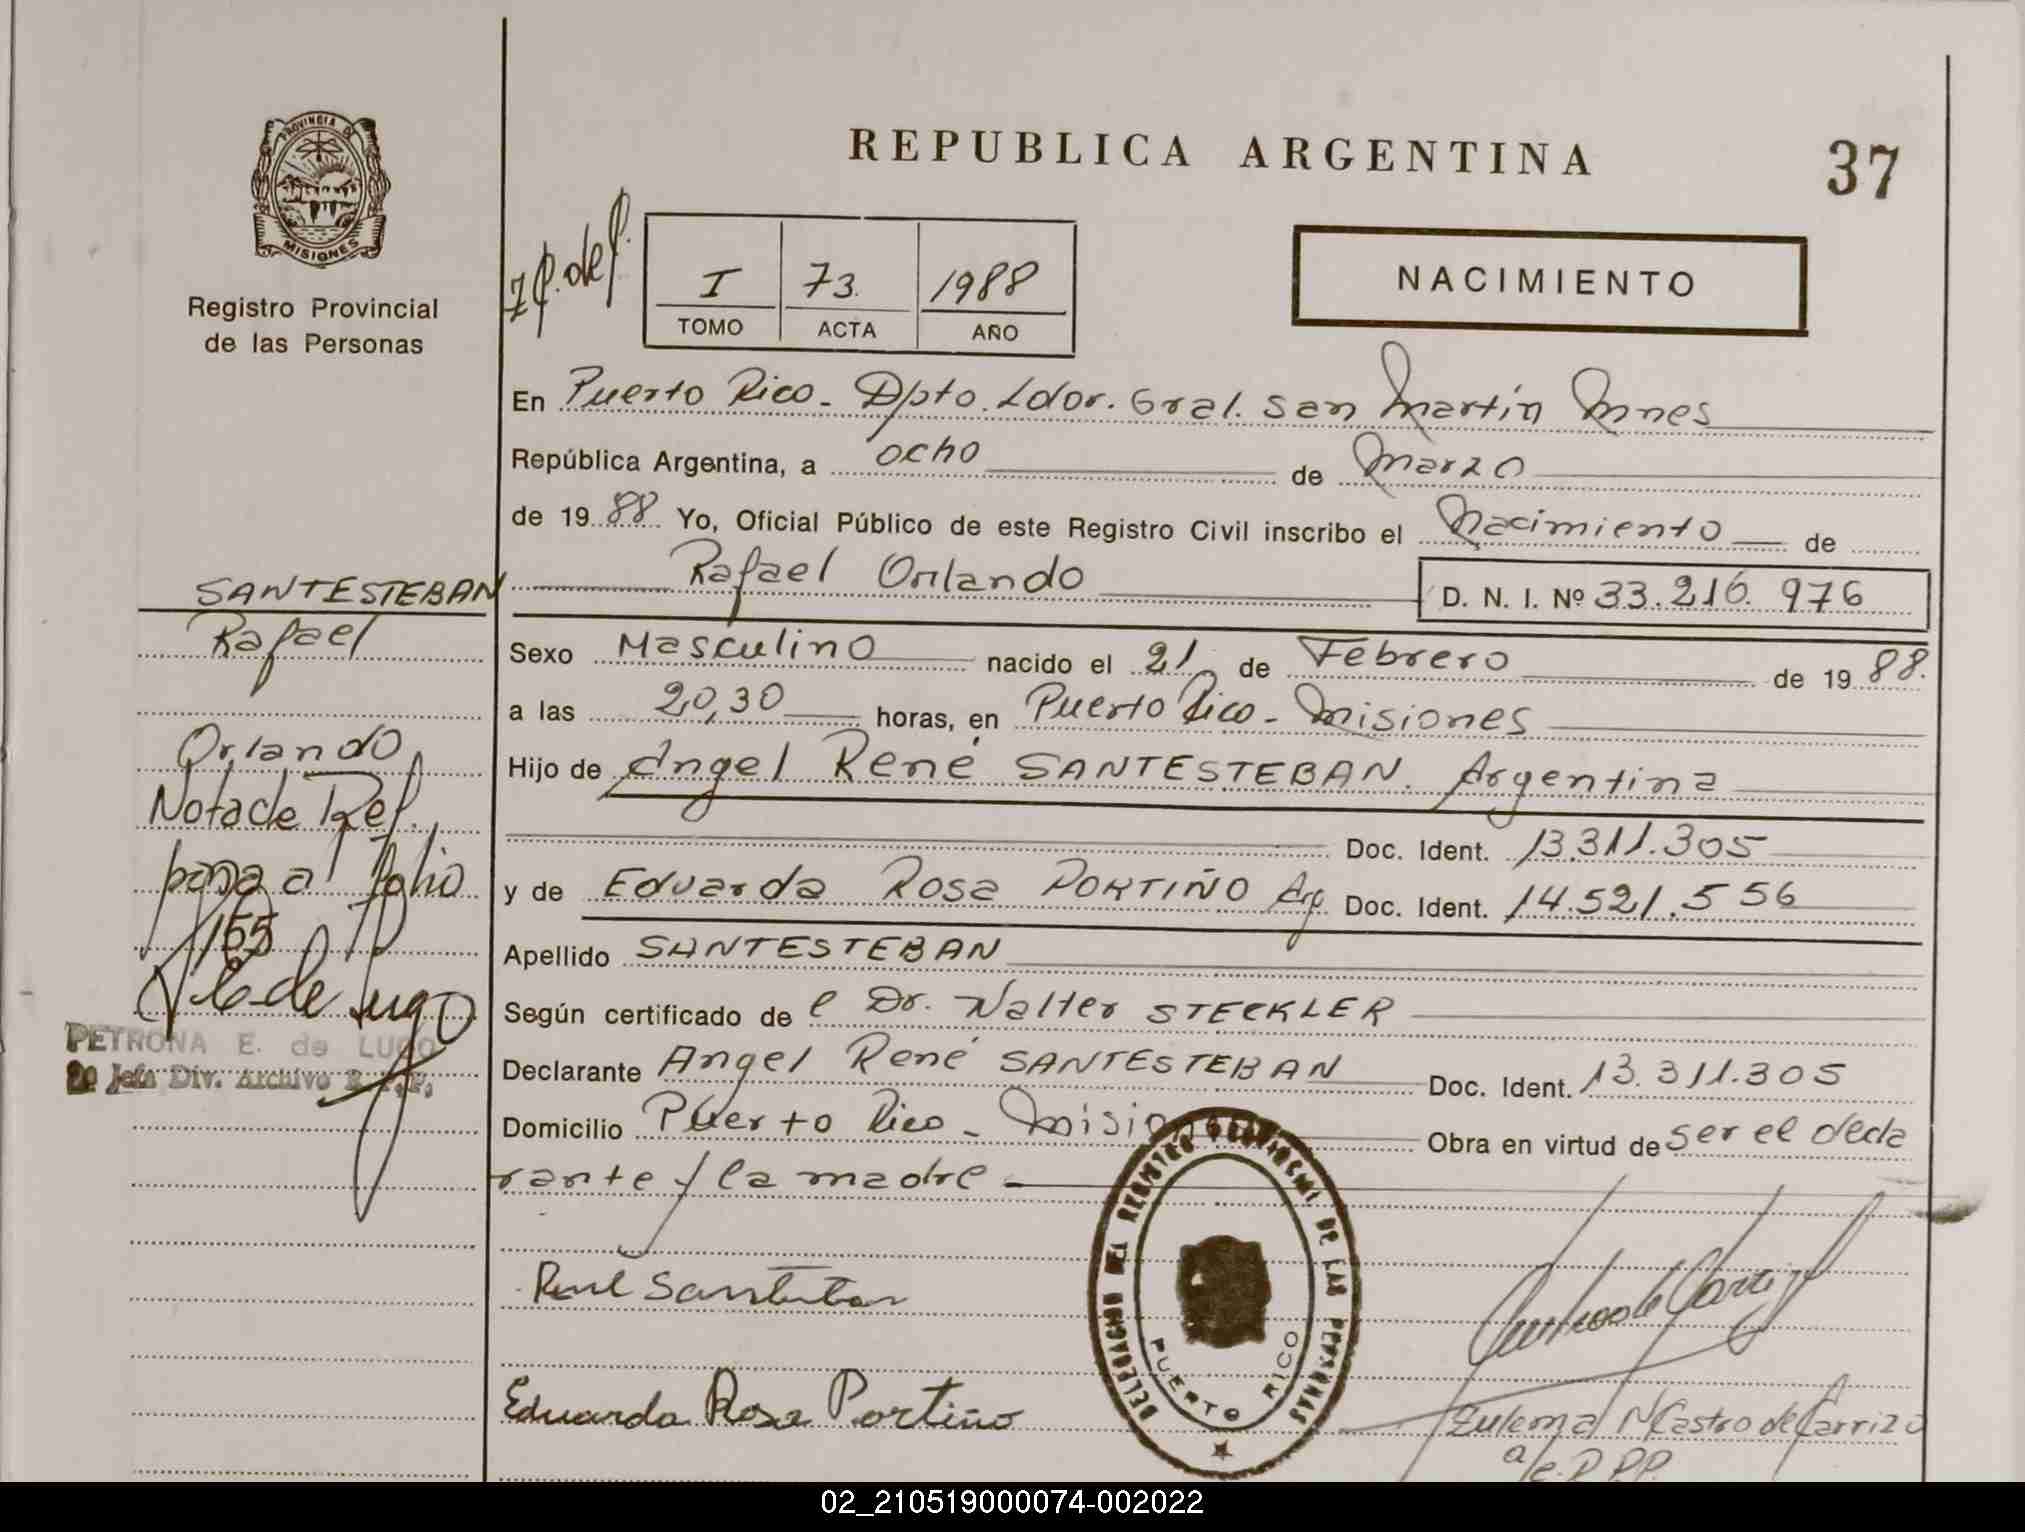 REPUBLICA ARGENTINA
37
PROVINCIA DE
MISIONES
Registro Provincial
de las Personas
I 73. 1988
TOMO ACTA AÑO
NACIMIENTO
En Puerto Rico - Dpto. Ldor. Gral. San Martín Mnes
República Argentina, a ocho de Marzo
de 1988 Yo, Oficial Público de este Registro Civil inscribo el Nacimiento de
Rafael Orlando D. N. I. Nº 33.216.976
SANTESTEBAN
Rafael
Orlando
Nota de Ref.
pasa al folio
155
PETRONA E. de LUGO
2º Jefa Div. Archivo R.P.P.
Sexo Masculino nacido el 21 de Febrero de 1988.
a las 20,30 horas, en Puerto Rico - Misiones
Hijo de Angel René SANTESTEBAN. Argentina
Doc. Ident. 13.311.305
y de Eduarda Rosa PORTIÑO Arg Doc. Ident. 14.521.556
Apellido SANTESTEBAN
Según certificado de el Dr. Walter STECKLER
Declarante Angel René SANTESTEBAN Doc. Ident. 13.311.305
Domicilio Puerto Rico - Misiones Obra en virtud de ser el decla
rante y la madre
DELEGACION DEL REGISTRO PROVINCIAL DE LAS PERSONAS
PUERTO RICO
René Santesteban
Eduarda Rosa Portiño
Zulema N Castro de Carrizo
a/c. D.P.P.
02_210519000074-002022